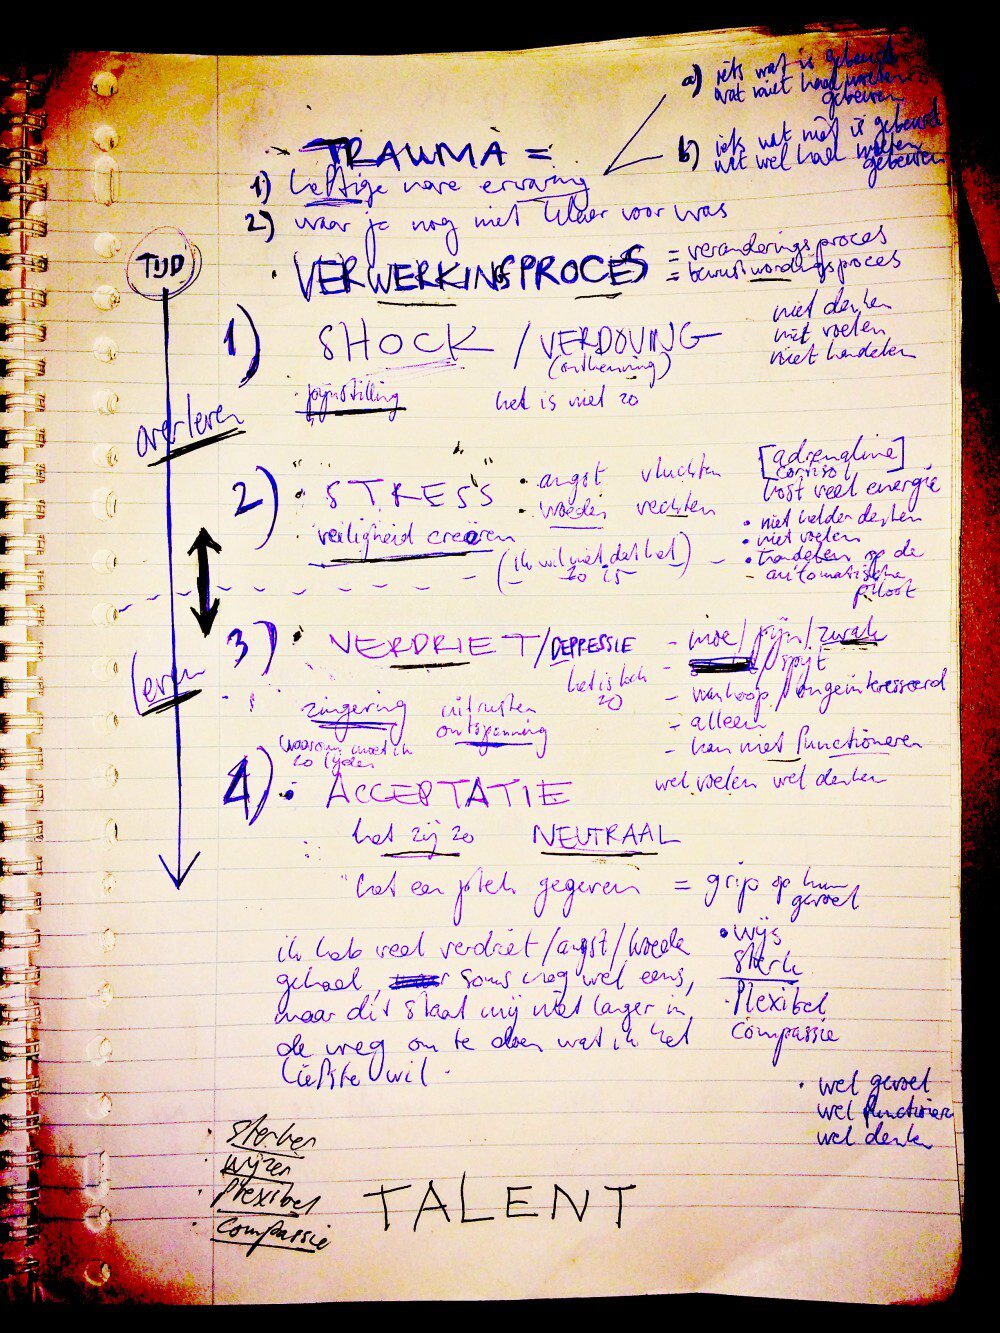 a) iets wat is gebeurd
wat niet had moeten
gebeuren
b) iets wat niet is gebeurd
wat wel had moeten
gebeuren
TRAUMA =
1) heftige nare ervaring
2) waar je nog niet klaar voor was
TIJD
VERWERKINSPROCES
= veranderingsproces
= bewustwordingsproces
1) SHOCK / VERDOVING
(ontkenning)
niet denken
niet voelen
niet handelen
pijnstilling
het is niet zo
overleven
2) "STRESS"
veiligheid creëren
• angst vluchten
• woede vechten
(ik wil niet dat het
zo is)
[adrenaline]
kost veel energie
• niet helder denken
• niet voelen
• handelen op de
automatische
piloot
leven
3) VERDRIET/DEPRESSIE
het is toch
zo
- moe/pijn/zwak
/spijt
- wanhoop/ongeinteresseerd
- alleen
- kan niet functioneren
zingering
waarom moet ik
zo lijden
uitrusten
ontspanning
wel voelen wel denken
4) ACCEPTATIE
het zij zo NEUTRAAL
"het een plek gegeven = grip op hun
gevoel
ik heb veel verdriet/angst/woede
gehad, soms nog wel eens,
maar dit staat mij niet langer in
de weg om te doen wat ik het
liefste wil.
• wijs
sterk
• Flexibel
compassie
• wel gevoel
wel functioneren
wel denken
sterker
• wijzer
• Flexibel
• compassie
TALENT